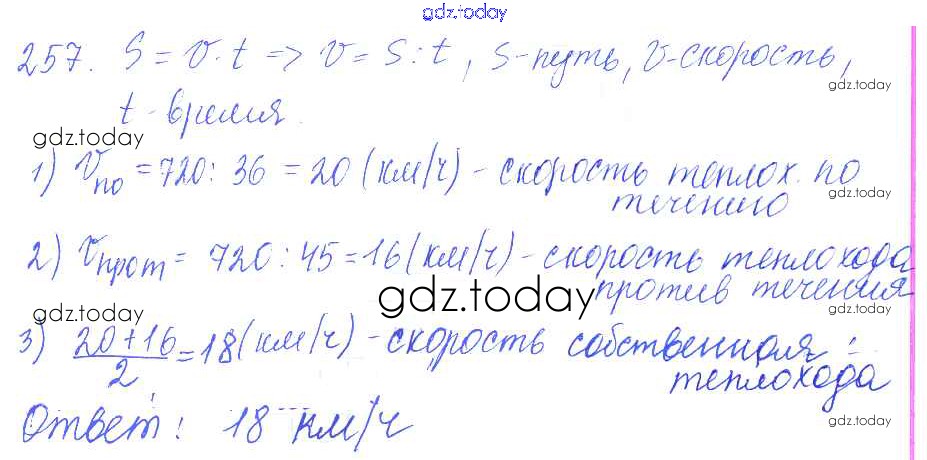 gdz.today
257. S = v·t => v = S : t, S-путь, v-скорость,
gdz.today
t-время.
gdz.today
1) vпо = 720 : 36 = 20 (км/ч) - скорость теплох. по
gdz.today
течению
2) vпрот = 720 : 45 = 16 (км/ч) - скорость теплохода
gdz.today
против течения
gdz.today
gdz.today
3) 20+16/2 = 18 (км/ч) - скорость собственная
теплохода
Ответ: 18 км/ч
gdz.today